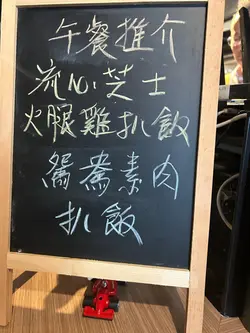 午餐推介
流心芝士
火腿雞扒飯
鴛鴦素肉
扒飯